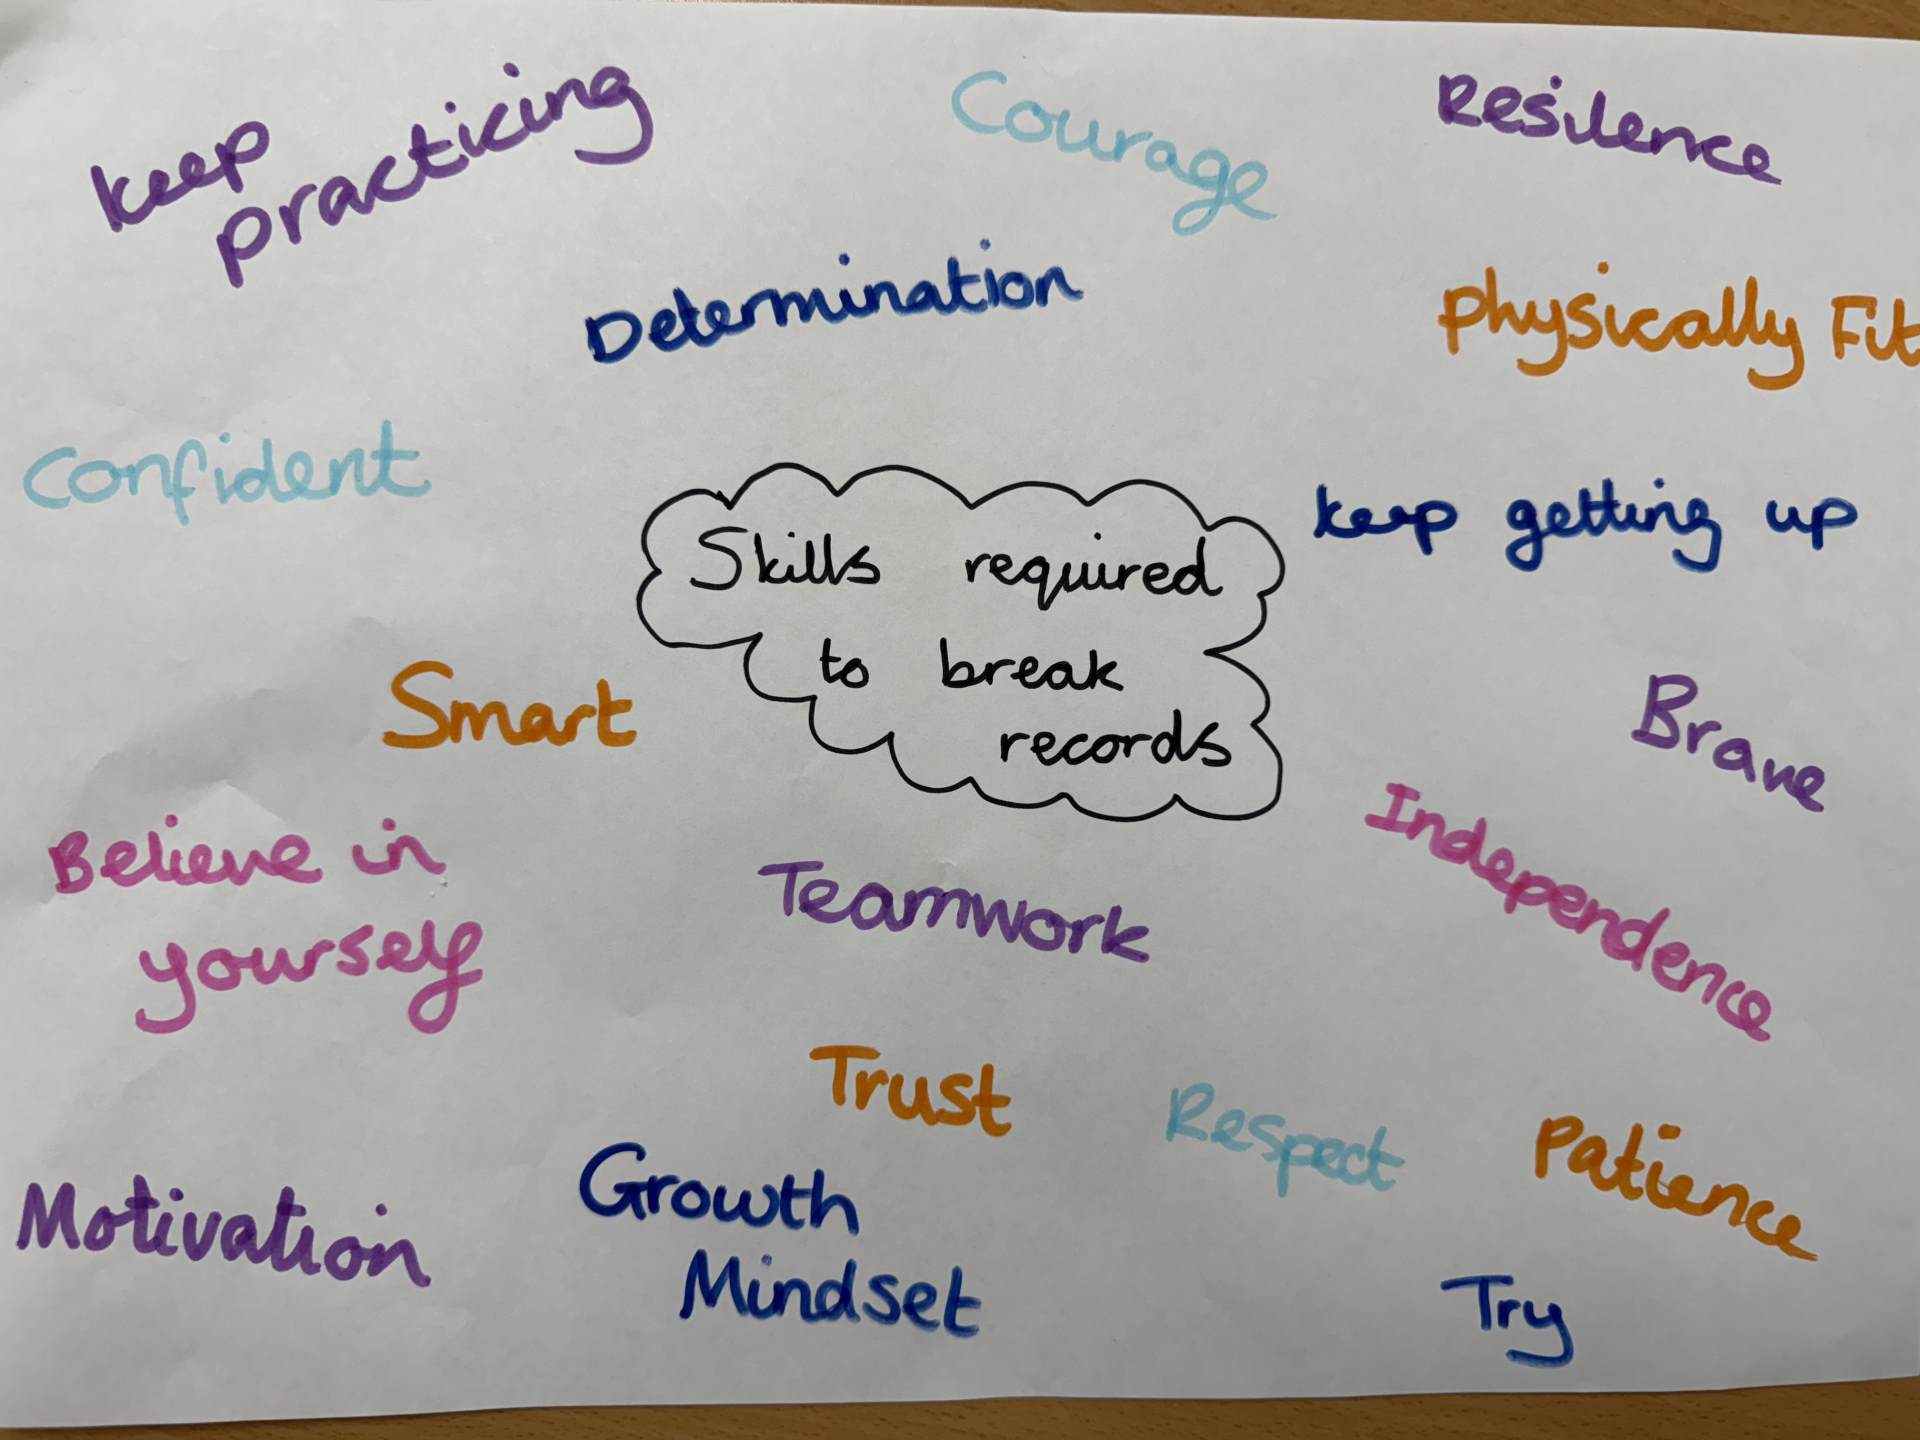 keep
practicing
Courage
Resilence
Determination
Physically Fit
Confident
keep getting up
Skills required
to break
records
Smart
Brave
Independence
Believe in
yourself
Teamwork
Trust
Respect
Patience
Motivation
Growth
Mindset
Try